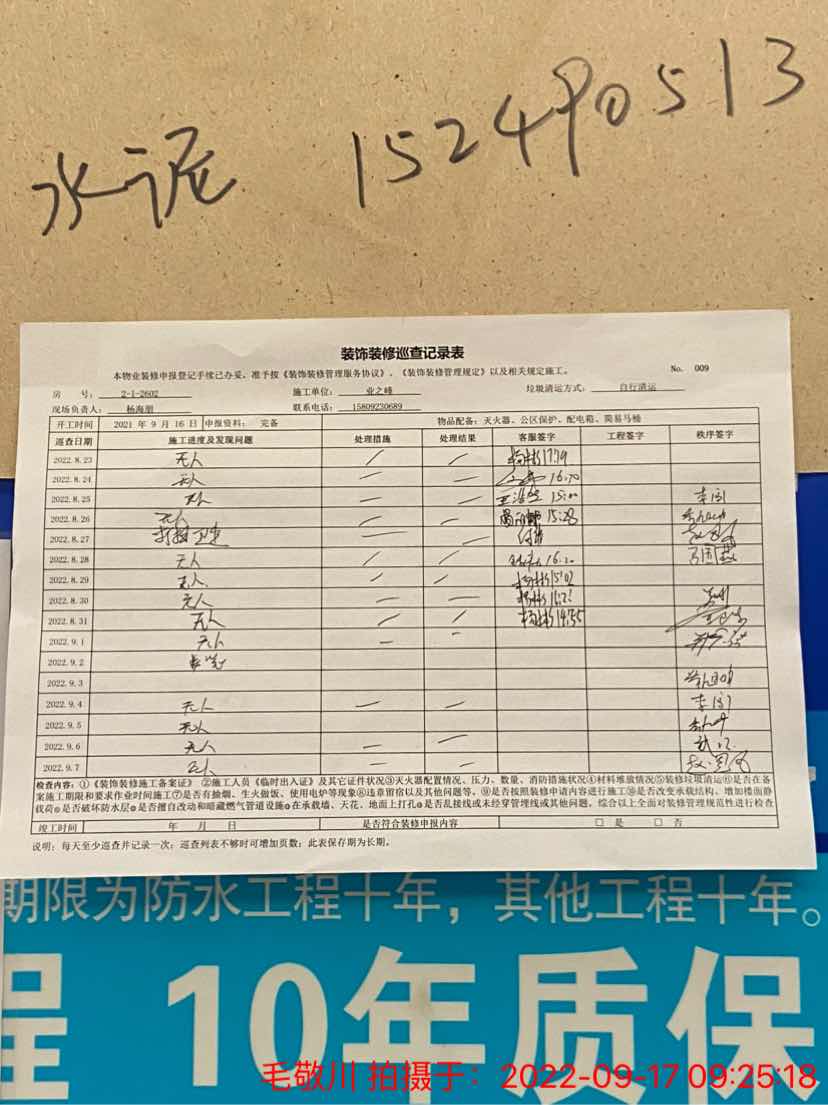 水泥 152490513
装饰装修巡查记录表
本物业装修申报登记手续已办妥，准予按《装饰装修管理服务协议》、《装饰装修管理规定》以及相关规定施工。 No. 009
房 号： 2-1-2602 施工单位： 业之峰 垃圾清运方式： 自行清运
现场负责人： 杨海朋 联系电话： 15809230689
开工时间 2021 年 9 月 16 日 申报资料： 完备 物品配备：灭火器、公区保护、配电箱、简易马桶
巡查日期 施工进度及发现问题 处理措施 处理结果 客服签字 工程签字 秩序签字
2022.8.23 无人
2022.8.24 无人
2022.8.25 无人 15:00
2022.8.26 无人
2022.8.27
2022.8.28 无人
2022.8.29 无人 15:02
2022.8.30 无人
2022.8.31 无人 14:35
2022.9.1 无人
2022.9.2
2022.9.3
2022.9.4 无人
2022.9.5 无人
2022.9.6 无人
2022.9.7 无人
检查内容：①《装饰装修施工备案证》 ②施工人员《临时出入证》及其它证件状况③灭火器配置情况、压力、数量、消防措施状况④材料堆放情况⑤装修垃圾清运⑥是否在备
案施工期限和要求作业时间施工⑦是否有抽烟、生火做饭、使用电炉等现象⑧违章留宿以及其他问题等、⑨是否按照装修申请内容进行施工⑩是否改变承载结构、增加楼面静
载荷 是否破坏防水层 是否擅自改动和暗藏燃气管道设施 在承载墙、天花、地面上打孔 是否乱接线或未经穿管埋线或其他问题，综合以上全面对装修管理规范性进行检查
竣工时间 年 月 日 是否符合装修申报内容 □ 是 □ 否
说明：每天至少巡查并记录一次；巡查列表不够时可增加页数；此表保存期为长期。
期限为防水工程十年，其他工程十年。
程 10年质保
毛敬川 拍摄于：2022-09-17 09:25:18